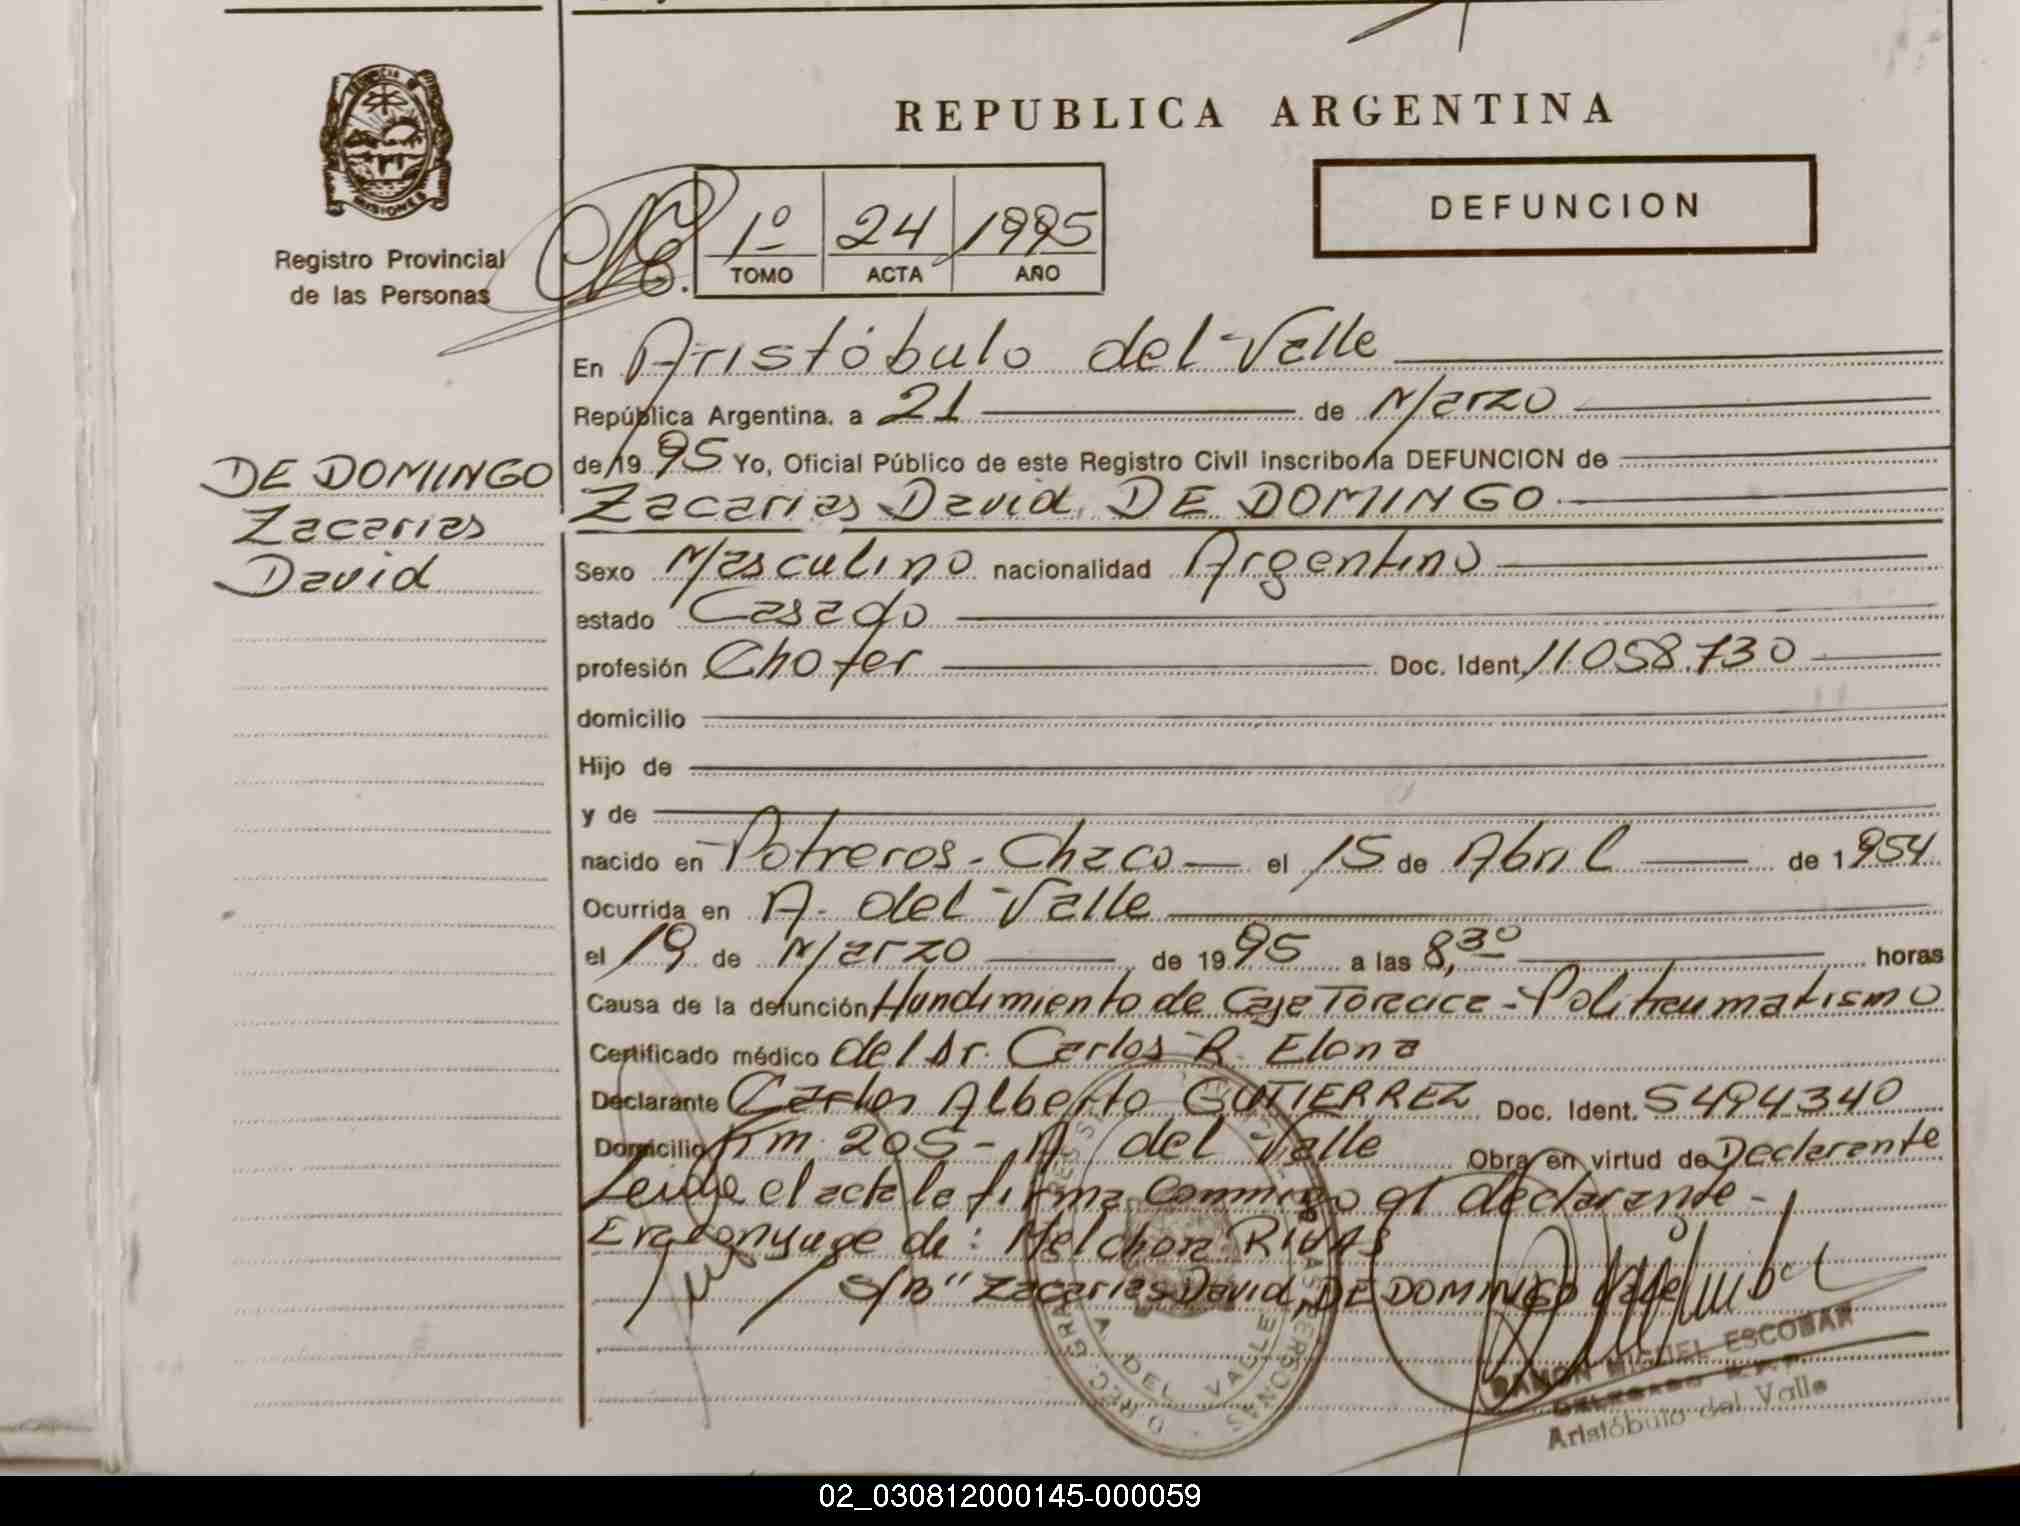 PROVINCIA DE
MISIONES
Registro Provincial
de las Personas
DE DOMINGO
Zacarias
David
REPUBLICA ARGENTINA
1º 24 1995
TOMO ACTA AÑO
DEFUNCION
En Aristóbulo del Valle
República Argentina, a 21 de Marzo
de 19 95 Yo, Oficial Público de este Registro Civil inscribo la DEFUNCION de
Zacarias David DE DOMINGO
Sexo Masculino nacionalidad Argentino
estado Casado
profesión Chofer Doc. Ident. 11058.730
domicilio
Hijo de
y de
nacido en Potreros - Chaco el 15 de Abril de 1954
Ocurrida en A. del Valle
el 19 de Marzo de 19 95 a las 8,30 horas
Causa de la defunción Hundimiento de Caja Toracica - Politraumatismo
Certificado médico del Dr. Carlos R. Elona
Declarante Carlos Alberto GUTIERREZ Doc. Ident. 5494340
Domicilio Km 205 - A. del Valle Obra en virtud de Declarante
Leida el acta la firma conmigo el declarante -
Era conyuge de: Melchora RIVAS
S/B "Zacarias David DE DOMINGO Vale
A. DEL VALLE
RAMON MIGUEL ESCOBAR
DELEGADO R.P.P.
Aristóbulo del Valle
02_030812000145-000059